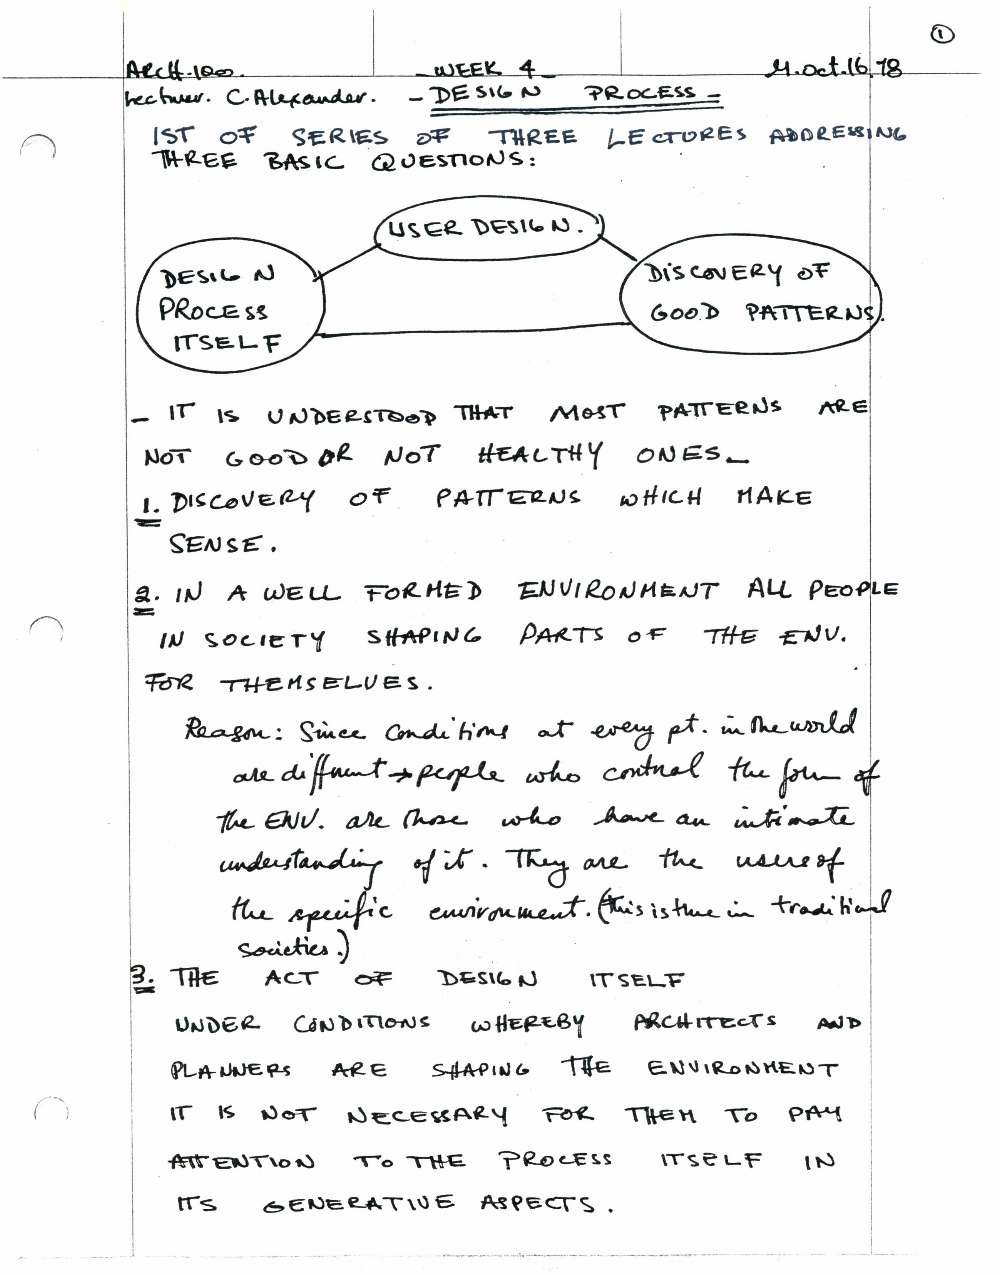 1
ARCH.100. -WEEK 4- M.Oct.16,78
Lecturer. C.Alexander. - DESIGN PROCESS -
1ST OF SERIES OF THREE LECTURES ADDRESSING
THREE BASIC QUESTIONS:
USER DESIGN.
DESIGN
PROCESS
ITSELF
DISCOVERY OF
GOOD PATTERNS.
- IT IS UNDERSTOOD THAT MOST PATTERNS ARE
NOT GOOD OR NOT HEALTHY ONES-
1. DISCOVERY OF PATTERNS WHICH MAKE
SENSE.
2. IN A WELL FORMED ENVIRONMENT ALL PEOPLE
IN SOCIETY SHAPING PARTS OF THE ENV.
FOR THEMSELVES.
Reason: Since conditions at every pt. in the world
are different → people who control the form of
the ENV. are those who have an intimate
understanding of it. They are the users of
the specific environment. (this is true in traditional
societies.)
3. THE ACT OF DESIGN ITSELF
UNDER CONDITIONS WHEREBY ARCHITECTS AND
PLANNERS ARE SHAPING THE ENVIRONMENT
IT IS NOT NECESSARY FOR THEM TO PAY
ATTENTION TO THE PROCESS ITSELF IN
ITS GENERATIVE ASPECTS.